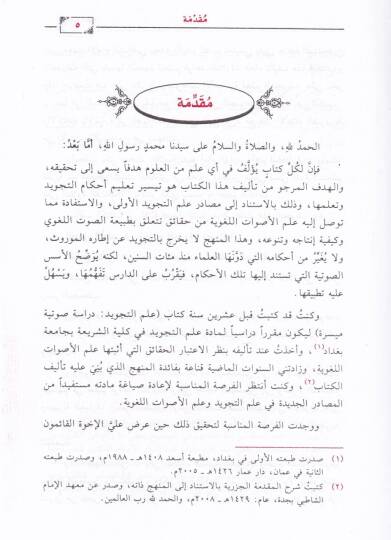 مُقَدِّمَة
٥
مُقَدِّمَة
الحمدُ للهِ، والصلاةُ والسلامُ على سيدنا محمدٍ رسولِ اللهِ، أمَّا بَعْدُ:
فإنَّ لكُلِّ كتابٍ يُؤَلَّفُ في أي علم من العلوم هدفاً يسعى إلى تحقيقه،
والهدف المرجو من تأليف هذا الكتاب هو تيسير تعليم أحكام التجويد
وتعلمها، وذلك بالاستناد إلى مصادر علم التجويد الأولى، والاستفادة مما
توصل إليه علم الأصوات اللغوية من حقائق تتعلق بطبيعة الصوت اللغوي
وكيفية إنتاجه وتنوعه، وهذا المنهج لا يخرج بالتجويد عن إطاره الموروث،
ولا يُغَيِّرُ من أحكامه التي دَوَّنَهَا العلماء منذ مئات السنين، لكنه يُوَضِّحُ الأسس
الصوتية التي تستند إليها تلك الأحكام، فيَقْرُبُ على الدارس تَفَهُّمُهَا، ويَسْهُلُ
عليه تطبيقها.
وكنتُ قد كتبتُ قبل عشرين سنة كتاب (علم التجويد: دراسة صوتية
ميسرة) ليكون مقرراً دراسياً لمادة علم التجويد في كلية الشريعة بجامعة
بغداد(١)، وأخذتُ عند تأليفه بنظر الاعتبار الحقائق التي أثبتها علم الأصوات
اللغوية، وزادتني السنوات الماضية قناعة بفائدة المنهج الذي بُنِيَ عليه تأليف
الكتاب(٢)، وكنت أنتظر الفرصة المناسبة لإعادة صياغة مادته مستفيداً من
المصادر الجديدة في علم التجويد وعلم الأصوات اللغوية.
ووجدت الفرصة المناسبة لتحقيق ذلك حين عرض عليَّ الإخوة القائمون
(١) صدرت طبعته الأولى في بغداد، مطبعة أسعد ١٤٠٨هـ ـ ١٩٨٨م، وصدرت طبعته
الثانية في عمان، دار عمار ١٤٢٦هـ ـ ٢٠٠٥م.
(٢) كتبتُ شرح المقدمة الجزرية بالاستناد إلى المنهج ذاته، وصدر عن معهد الإمام
الشاطبي بجدة، عام: ١٤٢٩هـ ـ ٢٠٠٨م، والحمد لله رب العالمين.